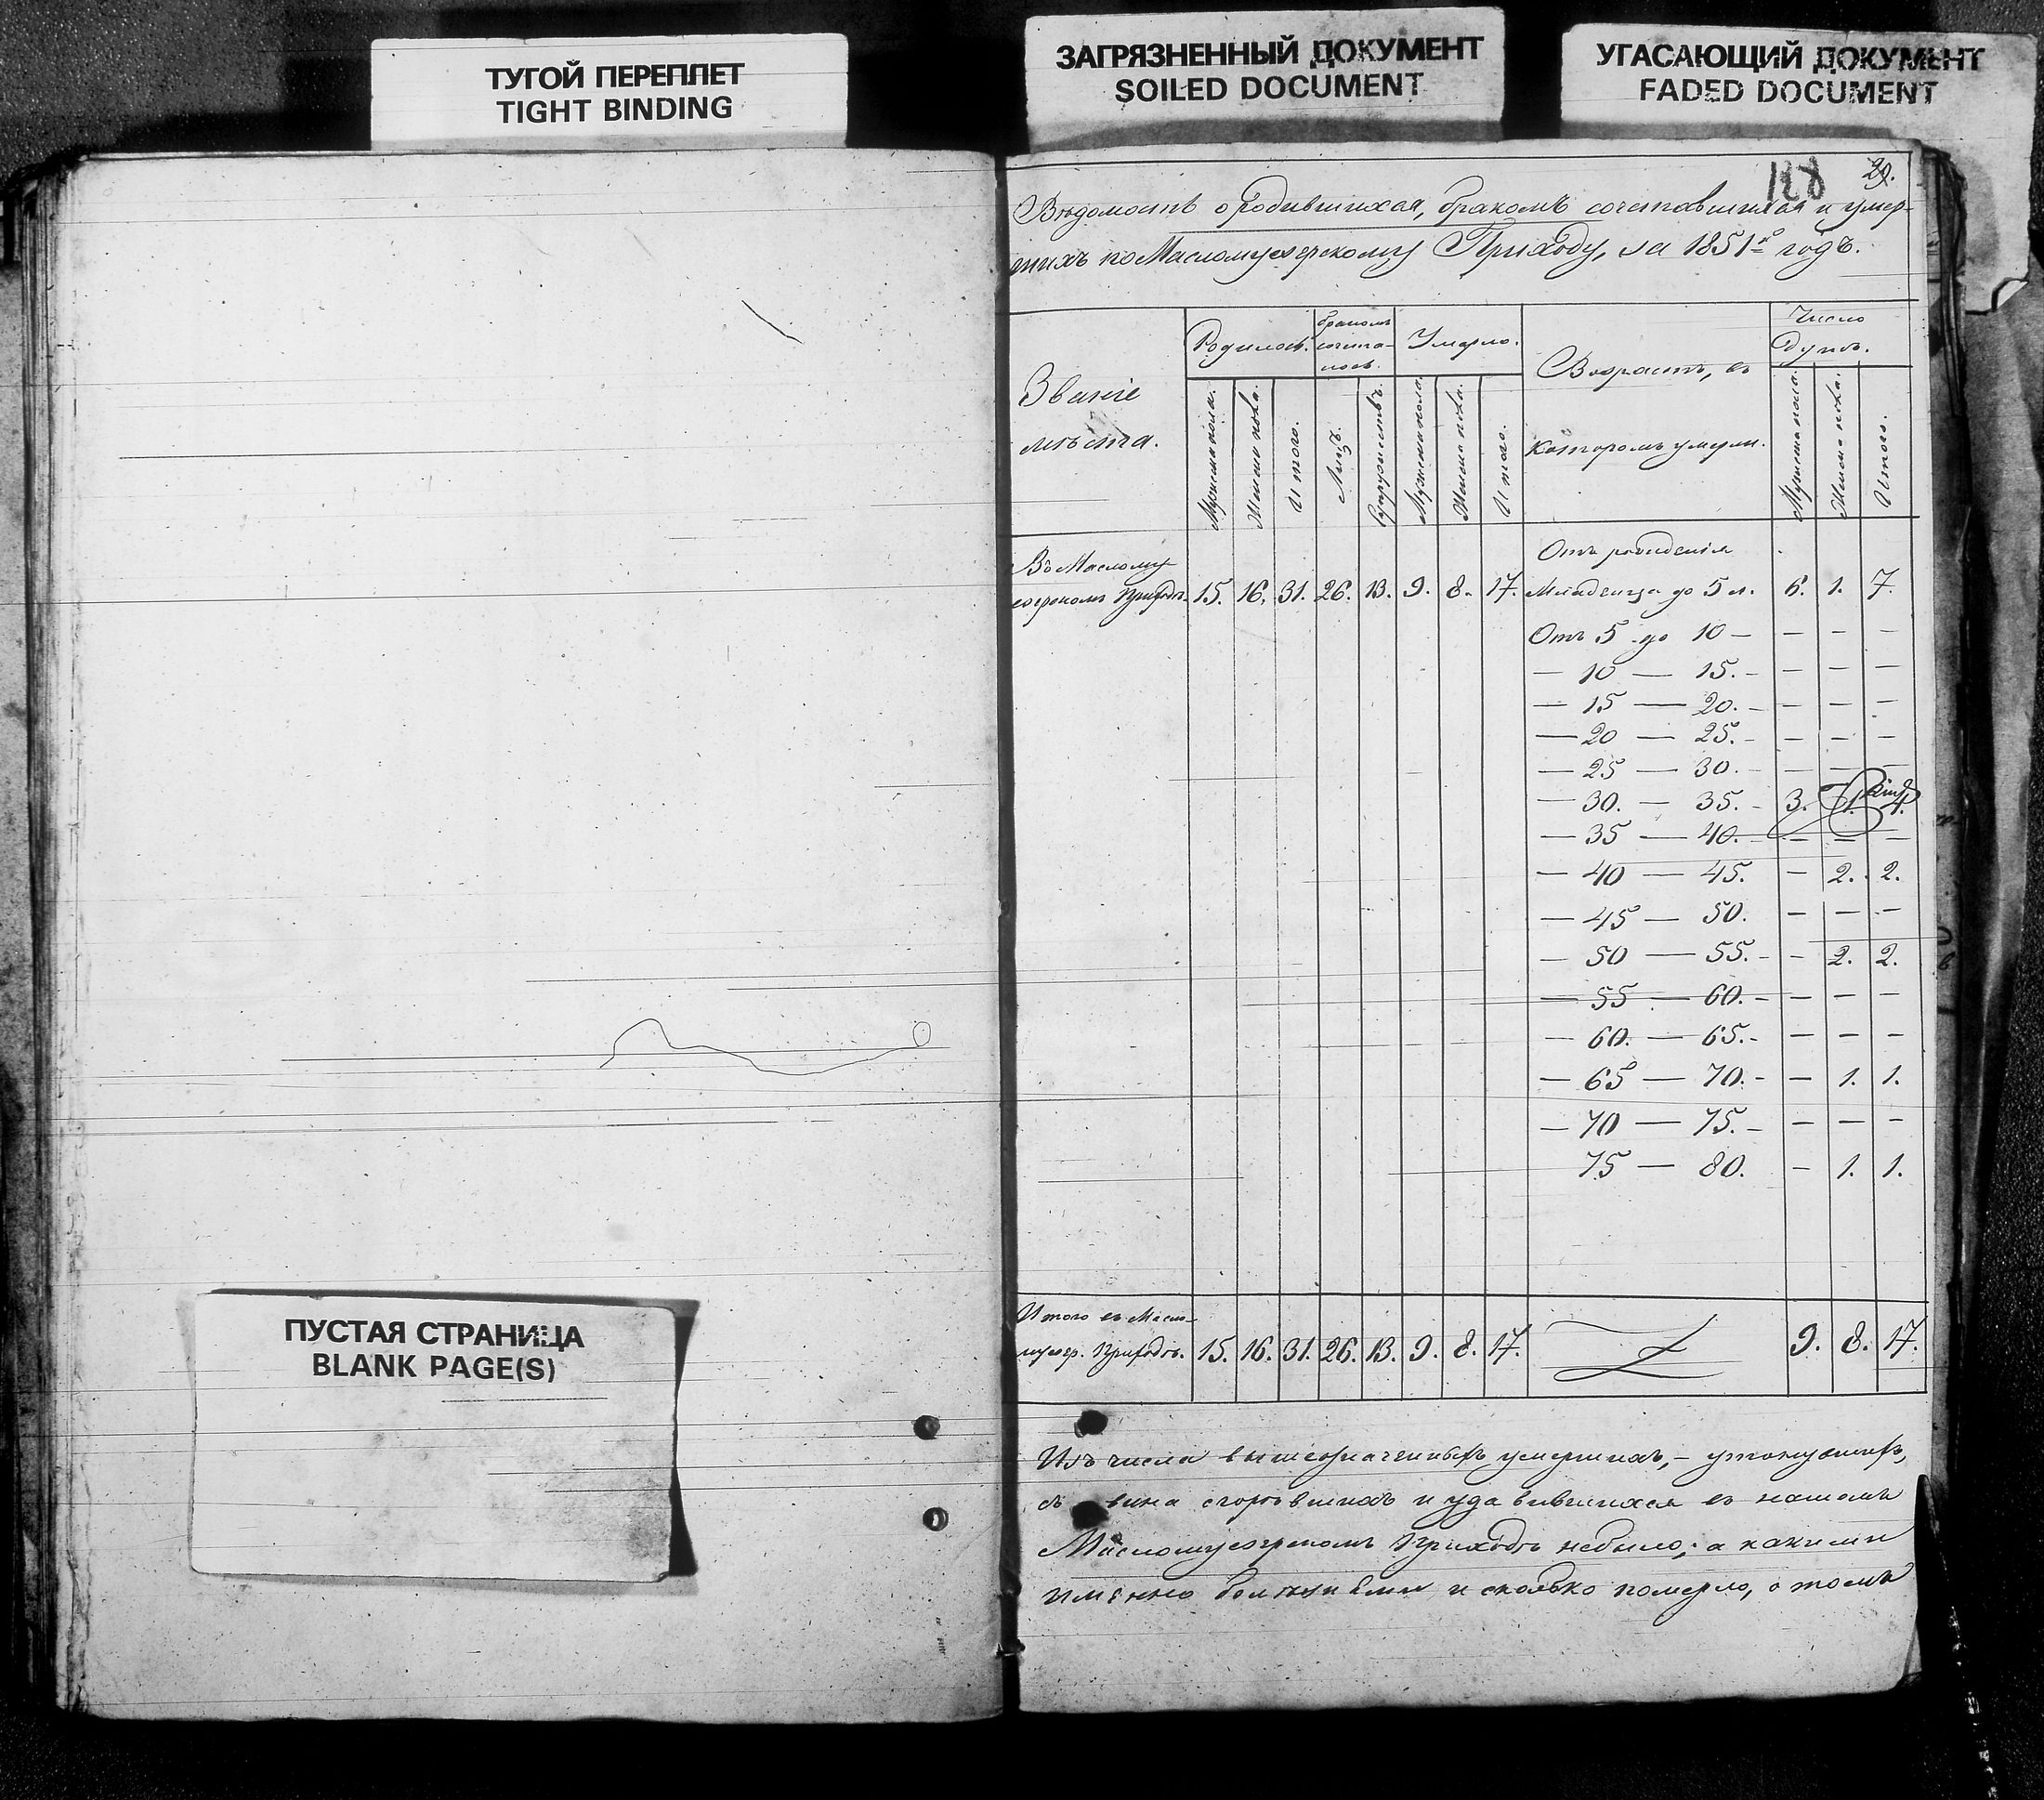 ТУГОЙ ПЕРЕПЛЕТ
TIGHT BINDING
ЗАГРЯЗНЕННЫЙ ДОКУМЕНТ
SOILED DOCUMENT
УГАСАЮЩИЙ ДОКУМЕНТ
FADED DOCUMENT
ПУСТАЯ СТРАНИЦА
BLANK PAGE(S)
128 29.
Вѣдомость о родившихся, бракомъ сочетавшихся и умер-
шихъ по Масломуозерскому Приходу, за 1851й годъ.
Званіе мѣста.
Родилось.
бракомъ сочета-лось.
Умерло.
Возрастъ, въ которомъ умерли.
Число душъ.
Мужска пола. Женска пола. Итого. Лицъ. Супружествъ. Мужска пола. Женска пола. Итого. Мужска пола. Женска пола. Итого.
Въ Маслому Отъ рожденія
озерскомъ Приходѣ. 15. 16. 31. 26. 13. 9. 8. 17. Младенца до 5 л. 6. 1. 7.
Отъ 5 до 10 — — — —
— 10 — 15. — — — —
— 15 — 20. — — — —
— 20 — 25. — — — —
— 25 — 30. — — — —
— 30. — 35. — 3. 1. 4.
— 35 — 40. — — — —
— 40 — 45. — 2. 2.
— 45 — 50. — — —
— 50 — 55. — — 2. 2.
— 55 — 60. — — — —
— 60. — 65. — — — —
— 65 — 70. — — 1. 1.
— 70 — 75. — — — —
75 — 80. — 1. 1.
Итого въ Масло-
муозер. Приходѣ. 15. 16. 31. 26. 13. 9. 8. 17. 9. 8. 17.
Изъ числа вышеозначенныхъ умершихъ, — утонувшихъ,
съ вина сгорѣвшихъ и удавившихся въ нашемъ
Масломуозерскомъ Приходѣ небыло; а какими
именно болѣзнями и сколько померло, о томъ